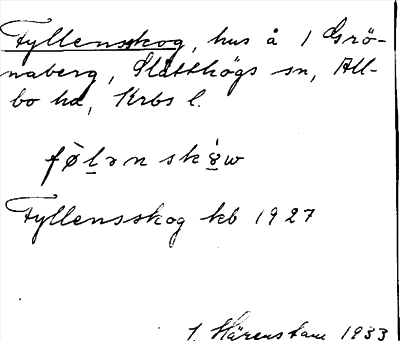 Fyllensskog, hus å 1 Grö-
naberg, Slätthögs sn, All-
bo hd, Krbs l.
Fyllensskog kb 1927
J. Härenstam 1933